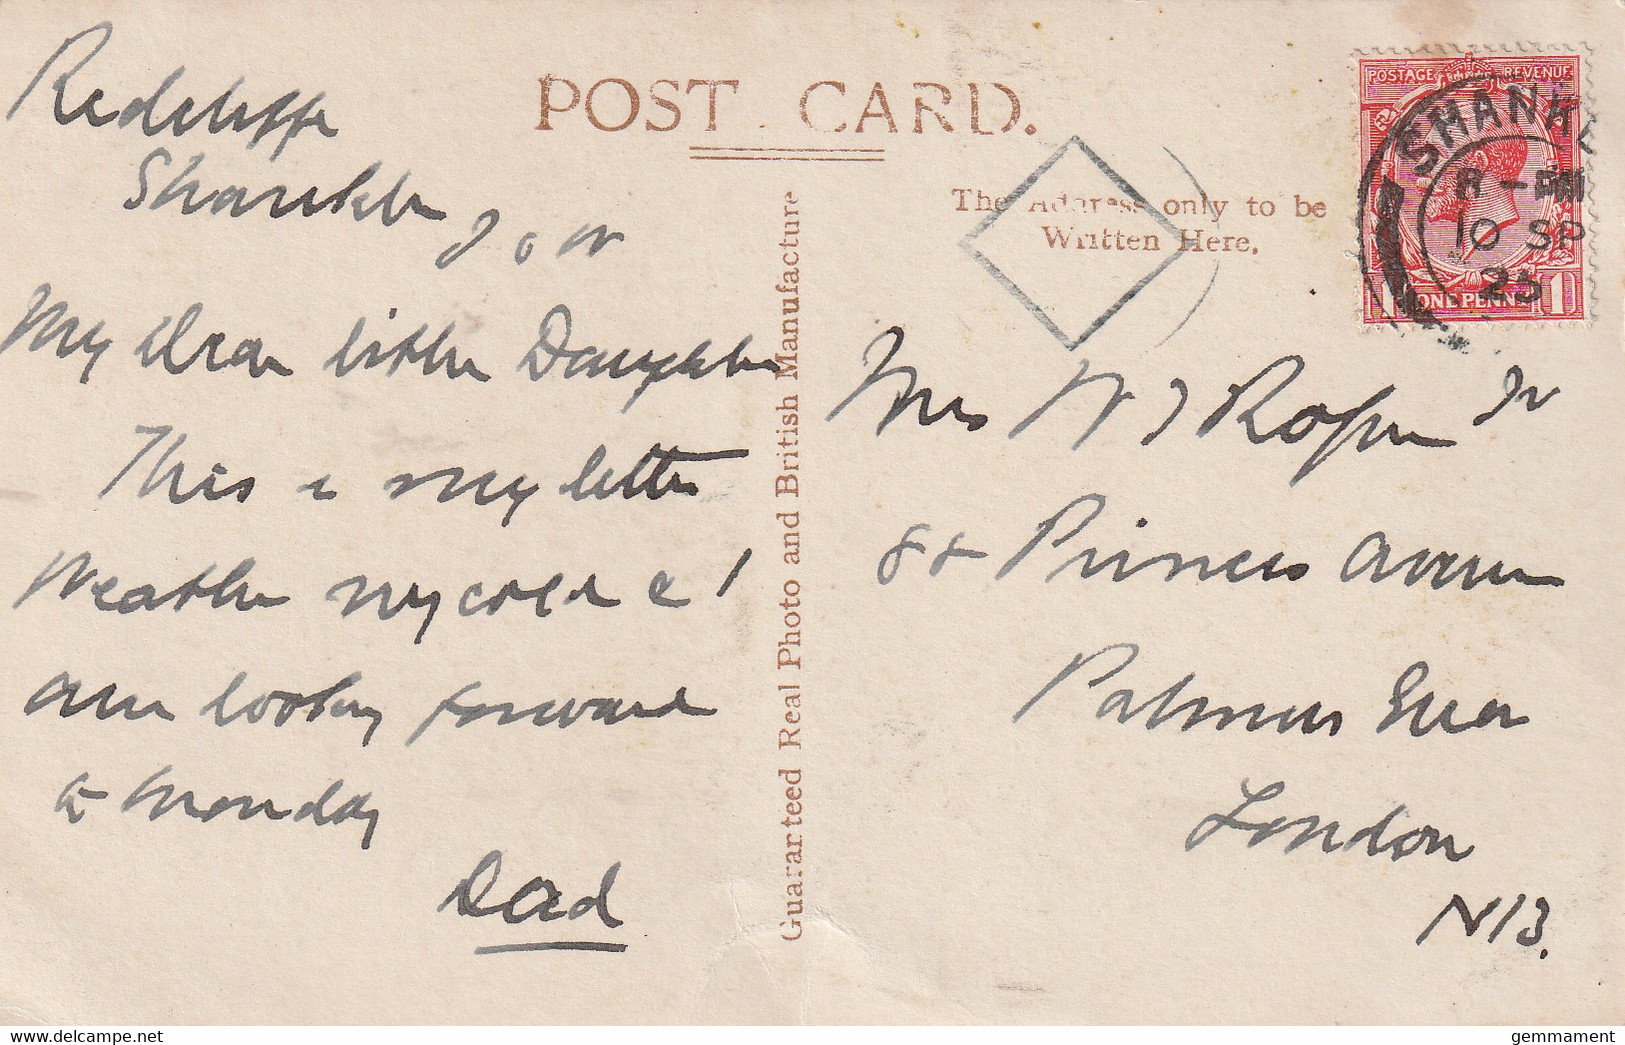 Redcliffe
Shanklin
I o W
My dear little Daughter
This is my letter
Weather very cold & I
am looking forward
to Monday
Dad
POST CARD.
The Address only to be
Written Here.
Guaranteed Real Photo and British Manufacture
POSTAGE REVENUE
SHANK
8 - PM
10 SP
25
1 ONE PENNY 1
Mrs W J Roper Jr
Princes Avenue
Palmers Green
London
N13.
gemmament